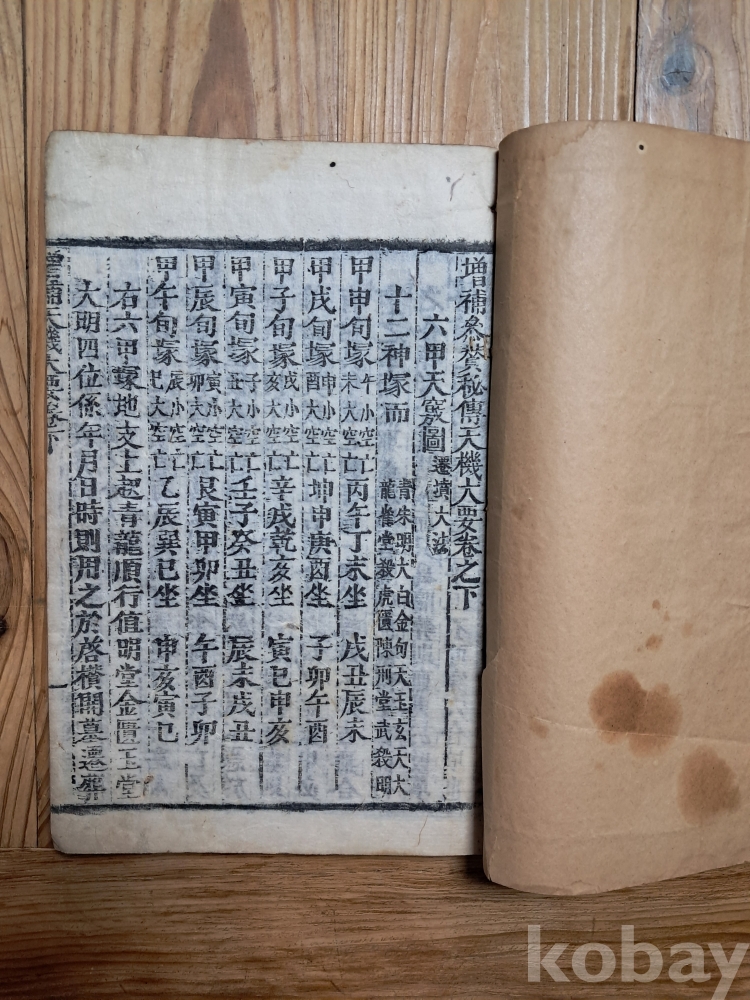 增補參贊秘傳天機大要卷之下
六甲天竅圖 遷墳大法
十二神塚而 青龍 朱雀 明堂 大殺 白虎 金匱 句陳 天刑 玉堂 玄武 天殺 大明
甲申旬塚 午小空亡 未大空亡 丙午丁未坐 戌丑辰未
甲戌旬塚 申小空亡 酉大空亡 坤申庚酉坐 子卯午酉
甲子旬塚 戌小空亡 亥大空亡 辛戌乾亥坐 寅巳申亥
甲寅旬塚 子小空亡 丑大空亡 壬子癸丑坐 辰未戌丑
甲辰旬塚 寅小空亡 卯大空亡 艮寅甲卯坐 午酉子卯
甲午旬塚 辰小空亡 巳大空亡 乙辰巽巳坐 申亥寅巳
右六甲塚地支上起青龍順行值明堂金匱玉堂
大明四位係年月日時則用之於啓欑開墓遷葬
增補天機大要卷下 一
kobay